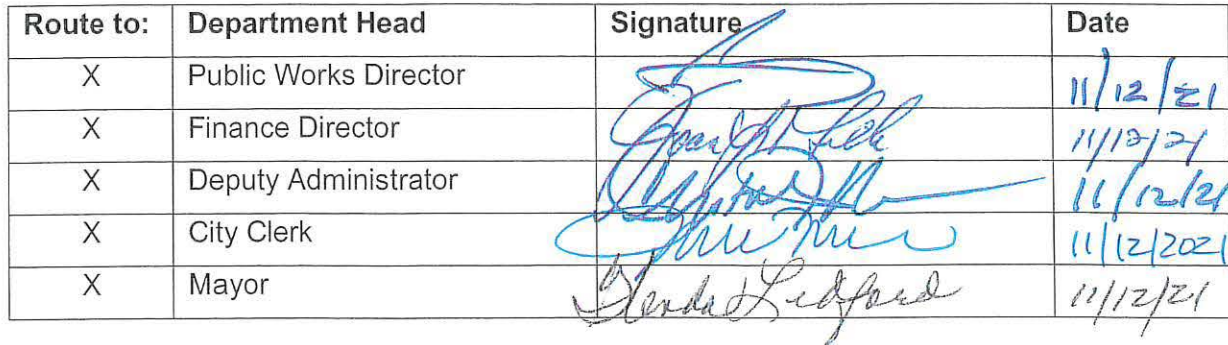 Route to: Department Head Signature Date
X Public Works Director 11/12/21
X Finance Director 11/12/21
X Deputy Administrator 11/12/21
X City Clerk 11/12/2021
X Mayor Glenda Ledford 11/12/21